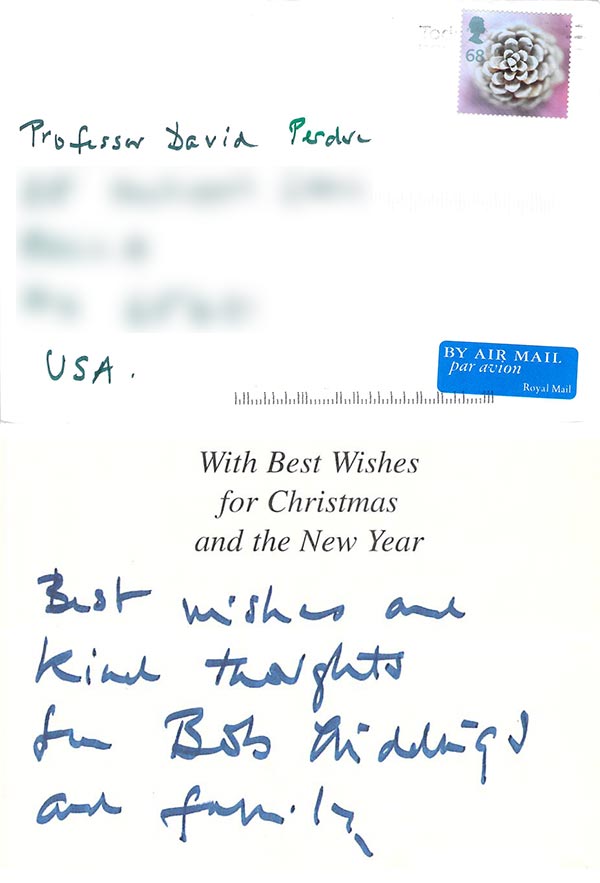 68
Professor David Perdue
USA.
BY AIR MAIL
par avion
Royal Mail
With Best Wishes
for Christmas
and the New Year
Best wishes and
kind thoughts
from Bob Giddings
and family